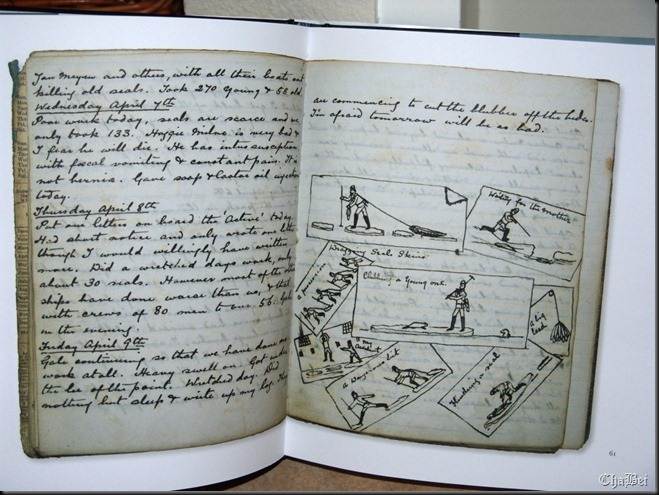 Jan Mayen and others, with all their boats out
killing old seals. Took 270 Young & 58 old
Wednesday April 7th
Poor work today, seals are scarce and we
only took 133. Haggie Milne is very bad &
I fear he will die. He has intussusception
with fœcal vomiting & constant pain. It is
not hernia. Gave soap & Castor oil injections
today.
Thursday April 8th
Put our letters on board the 'Active' today.
Had short notice and only wrote one letter
though I would willingly have written
more. Did a wretched days work, only
about 30 seals. However most of the other
ships have done worse than we, & that
with crews of 80 men to our 56. Gale
in the evening.
Friday April 9th
Gale continuing so that we have done no
work at all. Heavy swell on. Got under
the lee of the point. Wretched day. Did
nothing but sleep & write up my log. They
are commencing to cut the blubber off the hides.
I'm afraid tomorrow will be as bad.
Waiting for the Mother
Dragging Seal Skins
Clubbing a Young one.
A big
lead
Flinching a seal
61
ChaBei